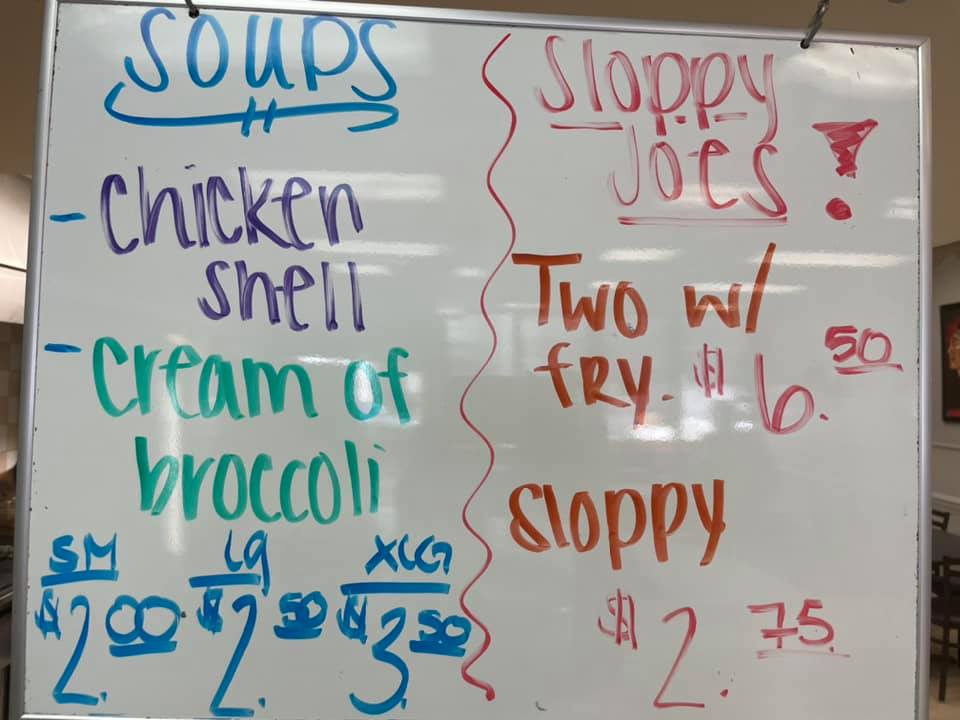 SOUPS
- Chicken
shell
- Cream of
broccoli
SM LG XLG
$2.00 $2.50 $3.50
Sloppy
Joes!
Two w/
fRy. $6.50
Sloppy
$2.75